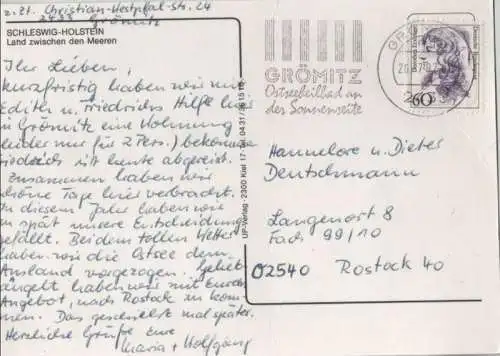 z.Zt. Christian-Westphal-Str. 24
2433 Grömitz
SCHLESWIG-HOLSTEIN
Land zwischen den Meeren
Ihr Lieben,
kurzfristig haben wir mit
Edith u. Friedrichs Hilfe hier
in Grömitz eine Wohnung
(leider nur für 2 Pers.) bekommen
Friedrich ist heute abgereist.
Zusammen haben wir
schöne Tage hier verbracht.
In diesem Jahr haben wir
zu spät unsere Entscheidung
gefällt. Bei dem tollen Wetter
haben wir die Ostsee dem
Ausland vorgezogen. Geliebt
haben wir mit Eurem
Angebot, nach Rostock zu kom-
men. Das geschieht mal später.
Herzliche Grüße Eure
Maria + Wolfgang
UP-Verlag · 2300 Kiel 17 · Tel. 0431/3615
GRÖMITZ
Ostseeheilbad an
der Sonnenseite
60
Deutsche Bundespost
Hannelore u. Dieter
Deutschmann
Langenort 8
Fach 99/10
02540 Rostock 40